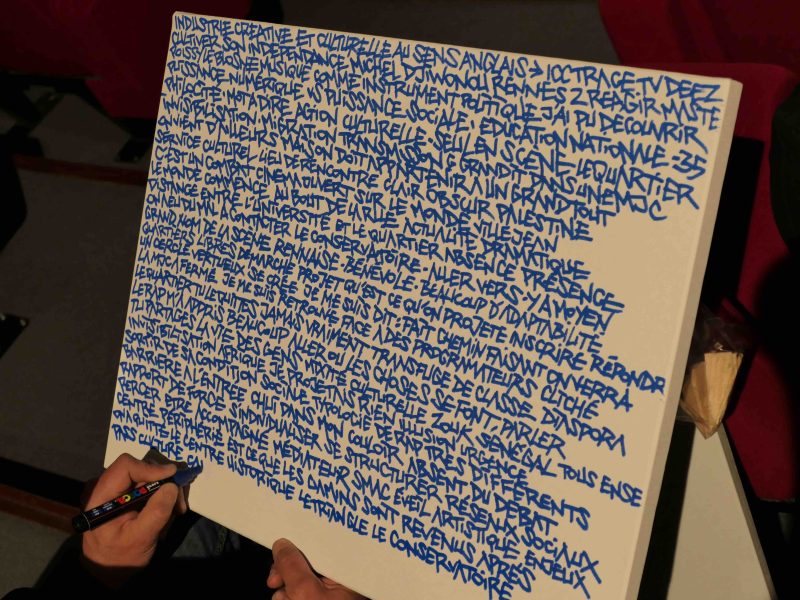 INDUSTRIE CRÉATIVE ET CULTURELLE AU SENS ANGLAIS > ICC TRACE.TV DEEZ
CULTIVER SON INDÉPENDANCE MICHEL DJIWONOU RENNES 2 RÉAGIR MIXTE
MUSIQUE COMME INSTRUMENT POLITIQUE J'AI PU DÉCOUVRIR
PUISSANCE NUMÉRIQUE VS PUISSANCE SOCIALE. ÉDUCATION NATIONALE. 35
PHILOCITÉ. MOT À DIRE ACTION CULTURELLE. SEUL EN SCÈNE. LE QUARTIER
INVISIBILISATION MIGRATION TRANSMISSION GRANDIT DANS UNE MJC
D'AILLEURS MAIS ON DOIT APPARTENIR À UN GRAND TOUT
SERVICE CULTUREL LIEU DE RENCONTRE CLAIR OBSCUR PALESTINE
C'EST UN COMBAT CINÉMA OUVERT SUR LE MONDE VILLEJEAN
LE MONDE COMMENCE AU BOUT DE LA RUE ACTUALITÉ DRAMATIQUE
DISTANCE ENTRE L'UNIVERSITÉ ET LE QUARTIER ABSENCE PRÉSENCE
ON A EU DU MAL À CONTACTER LE CONSERVATOIRE. ALLER VERS. Y'A MOYEN
GRAND NOM DE LA SCÈNE RENNAISE. BÉNÉVOLE. BEAUCOUP D'ADAPTABILITÉ
QUARTIERS LIBRES DÉMARCHE PROJET QU'EST CE QU'ON PROJETTE INSCRIRE RÉPONDR
UN CERCLE VERTUEUX SE CRÉER JE ME SUIS DIT: FAIT CHEMIN FAISANT ON VERRA
LA MJC A FERMÉ. JE ME SUIS RETROUVÉ FACE À DES PROGRAMMATEURS CLICHÉ
LE QUARTIER TU LE QUITTES JAMAIS VRAIMENT TRANSFUGE DE CLASSE DIASPORA
LE RAP M'A APPRIS BEAUCOUP ALLER OÙ LES CHOSES SE FONT. PARLER
TU PARTAGES LA VIE DES GENS MIXITÉ CULTURELLE ZOUK SÉNÉGAL TOUS ENSE
INVISIBILISATION AFRIQUE JE PROJETAIS RIEN ILLUSION URGENCE
SORTIR DE SA CONDITION SOCIALE TYPOLOGIE DE RAP TRÈS DIFFÉRENTS
BARRIÈRE À L'ENTRÉE CULT DANS MON COULOIR ABSENT DU DÉBAT
RAPPORT DE FORCE S'INDIVIDUALISER SE STRUCTURER RÉSEAUX SOCIAUX
PERCER ÊTRE ACCOMPAGNÉ MÉDIATEUR SMAC ÉVEIL ARTISTIQUE ENJEUX
CENTRE PÉRIPHÉRIE ET CE QUE LES GAMINS SONT REVENUS APRÈS
ON QUITTE LE CENTRE HISTORIQUE LE TRIANGLE LE CONSERVATOIRE
PASS CULTURE
uni POSCA